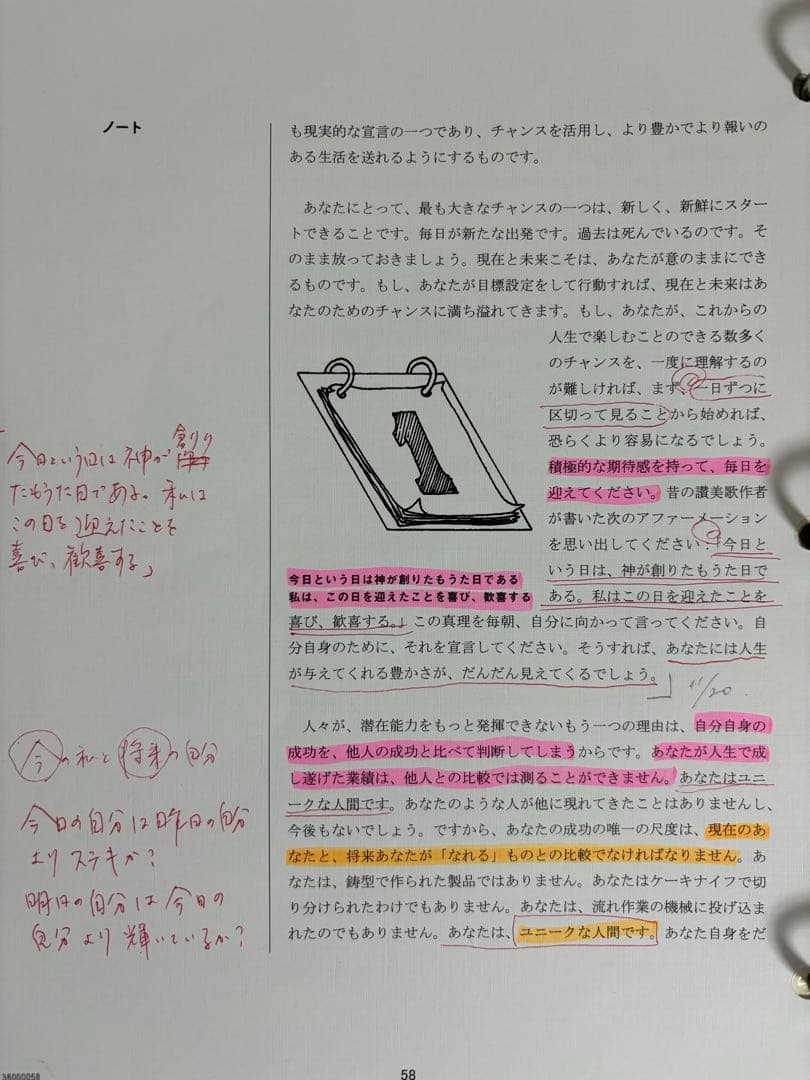 ノート
も現実的な宣言の一つであり、チャンスを活用し、より豊かでより報いの
ある生活を送れるようにするものです。
あなたにとって、最も大きなチャンスの一つは、新しく、新鮮にスター
トできることです。毎日が新たな出発です。過去は死んでいるのです。そ
のまま放っておきましょう。現在と未来こそは、あなたが意のままにでき
るものです。もし、あなたが目標設定をして行動すれば、現在と未来はあ
なたのためのチャンスに満ち溢れてきます。もし、あなたが、これからの
人生で楽しむことのできる数多く
のチャンスを、一度に理解するの
が難しければ、まず、一日ずつに
区切って見ることから始めれば、
恐らくより容易になるでしょう。
積極的な期待感を持って、毎日を
迎えてください。昔の讃美歌作者
が書いた次のアファーメーション
を思い出してください:「今日と
いう日は、神が創りたもうた日で
ある。私はこの日を迎えたことを
喜び、歓喜する。」この真理を毎朝、自分に向かって言ってください。自
分自身のために、それを宣言してください。そうすれば、あなたには人生
が与えてくれる豊かさが、だんだん見えてくるでしょう。
1
今日という日は神が創りたもうた日である
私は、この日を迎えたことを喜び、歓喜する
「今日という日は神が創り
たもうた日である。私は
この日を迎えたことを
喜び、歓喜する」
人々が、潜在能力をもっと発揮できないもう一つの理由は、自分自身の
成功を、他人の成功と比べて判断してしまうからです。あなたが人生で成
し遂げた業績は、他人との比較では測ることができません。あなたはユニ
ークな人間です。あなたのような人が他に現れてきたことはありませんし、
今後もないでしょう。ですから、あなたの成功の唯一の尺度は、現在のあ
なたと、将来あなたが「なれる」ものとの比較でなければなりません。あ
なたは、鋳型で作られた製品ではありません。あなたはケーキナイフで切
り分けられたわけでもありません。あなたは、流れ作業の機械に投げ込ま
れたのでもありません。あなたは、ユニークな人間です。あなた自身をだ
今の私と将来の自分
今日の自分は昨日の自分
よりステキか?
明日の自分は今日の
自分より輝いているか?
38000058
58